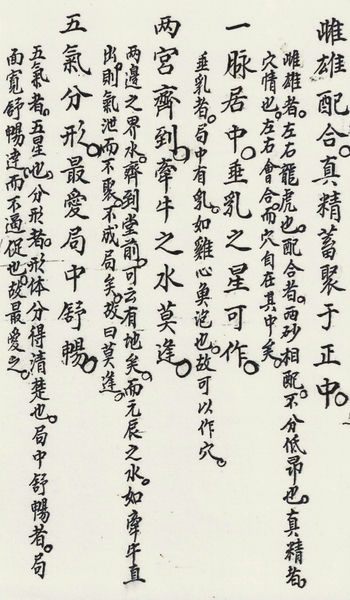 雌雄配合。真精蓄聚于正中。
雌雄者。左右龍虎也。配合者。両砂相配。不分低昂也。真精者。
穴情也。左右會合。而穴自在其中矣。
一脉居中。垂乳之星可作。
垂乳者。局中有乳。如雞心魚泡也。故可以作穴。
两宮齊到。牽牛之水莫逢。
两邊之界水。齊到堂前。可云有地矣。而元辰之水。如牽牛直
出。則氣泄而不聚。不成局矣。故曰莫逢。
五氣分形。最愛局中舒暢。
五氣者。五星也。分形者。形体分得清楚也。局中舒暢者。局
面寬舒暢達。而不逼促也。故最愛之。